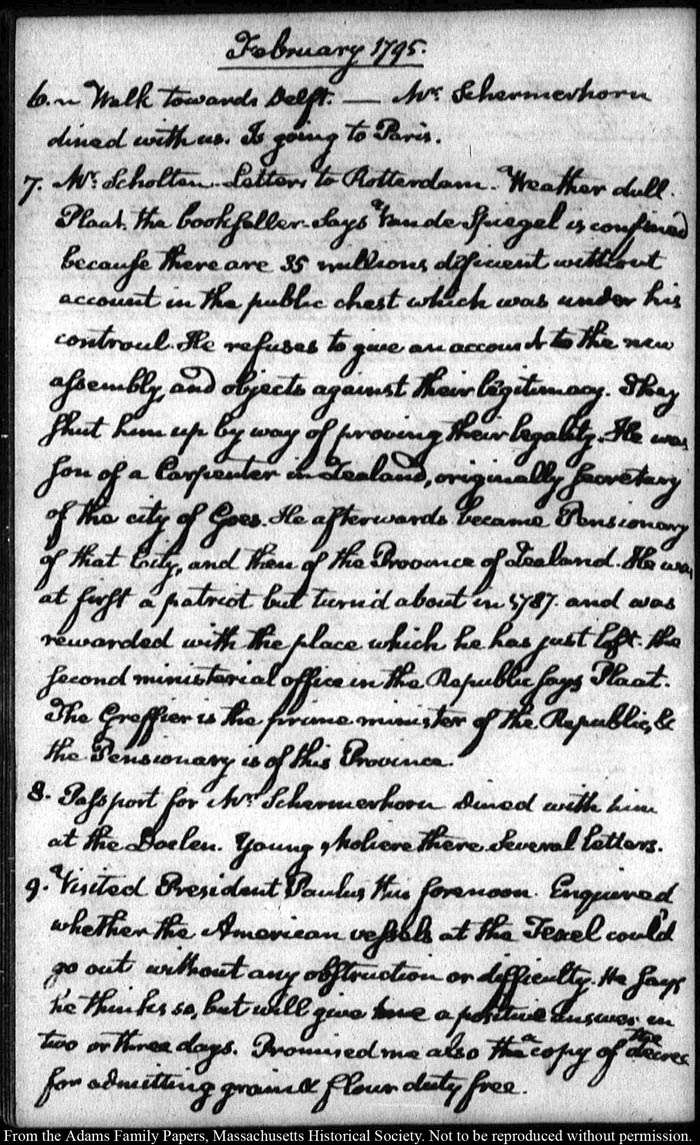 February 1795.
6. Walk towards Delft. — Mr. Schermerhorn
dined with us. Is going to Paris.
7. Mr. Scholten. Letters to Rotterdam. Weather dull.
Plaat. the bookseller. Says Van de Spiegel is confined
because there are 35 millions deficient without
account in the public chest which was under his
controul. He refuses to give an account to the new
assembly, and objects against their legitimacy. They
shut him up by way of proving their legality. He was
son of a Carpenter in Zealand, originally Secretary
of the city of Goes. He afterwards became Pensionary
of that City, and then of the Province of Zealand. He was
at first a patriot but turn'd about in 1787. and was
rewarded with the place which he has just left. the
second ministerial office in the Republic says Plaat.
The Greffier is the prime minister of the Republic, &
the Pensionary is of this Province.
8. Passport for Mr. Schermerhorn Dined with him
at the Doelen. Young there. Several letters.
9. Visited President Paulus this forenoon. Enquired
whether the American vessels at the Texel could
go out without any obstruction or difficulty. He says
he thinks so, but will give me a positive answer in
two or three days. Promised me also a copy of the decree
for admitting grain & flour duty free.
From the Adams Family Papers, Massachusetts Historical Society. Not to be reproduced without permission.